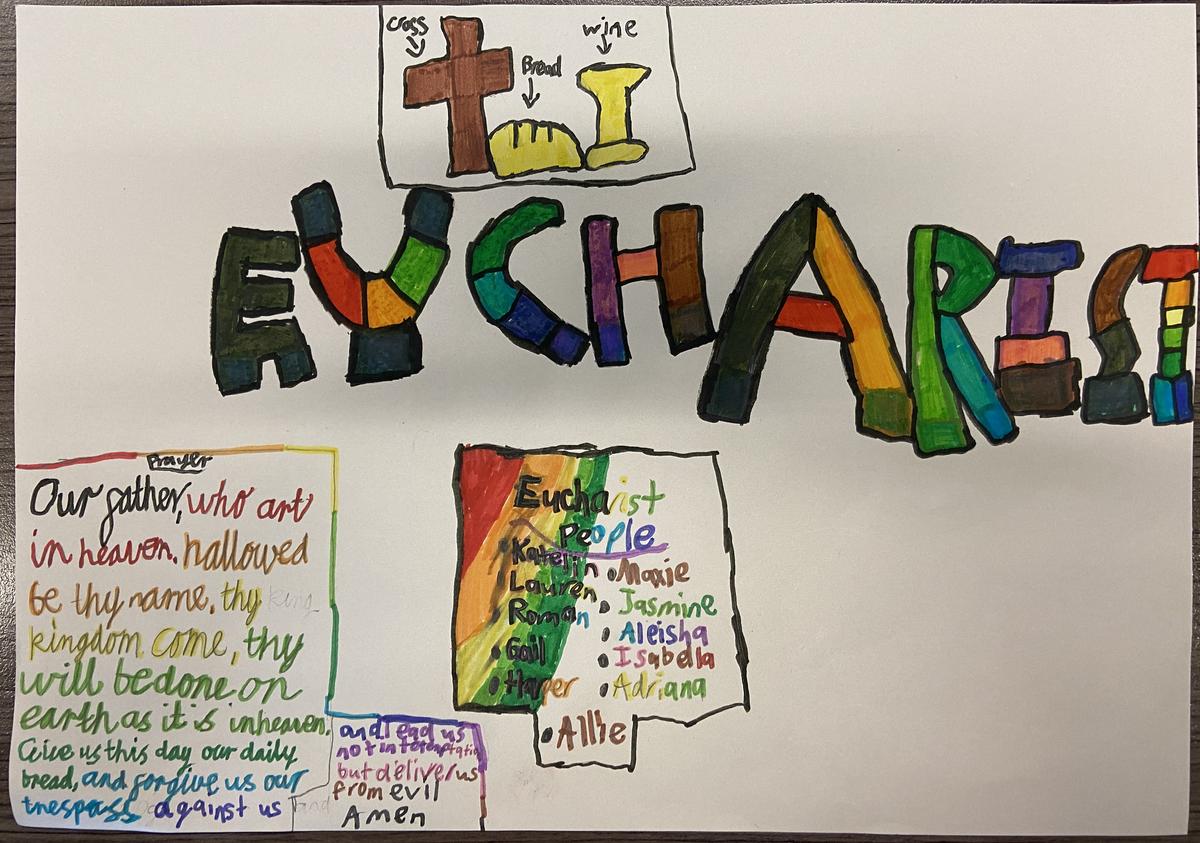 cross
Bread
wine
EUCHARIST
Prayer
Our father, who art
in heaven. hallowed
be thy name, thy king
kingdom come, thy
will be done on
earth as it is in heaven.
Give us this day our daily
bread, and forgive us our
tnespass against us and
and lead us
not in temptatio
but deliver us
from evil
Amen
Eucharist
People
• Katelin
• Lauren
• Roman
• Gail
• Harper
• Maxie
• Jasmine
• Aleisha
• Isabella
• Adriana
• Allie